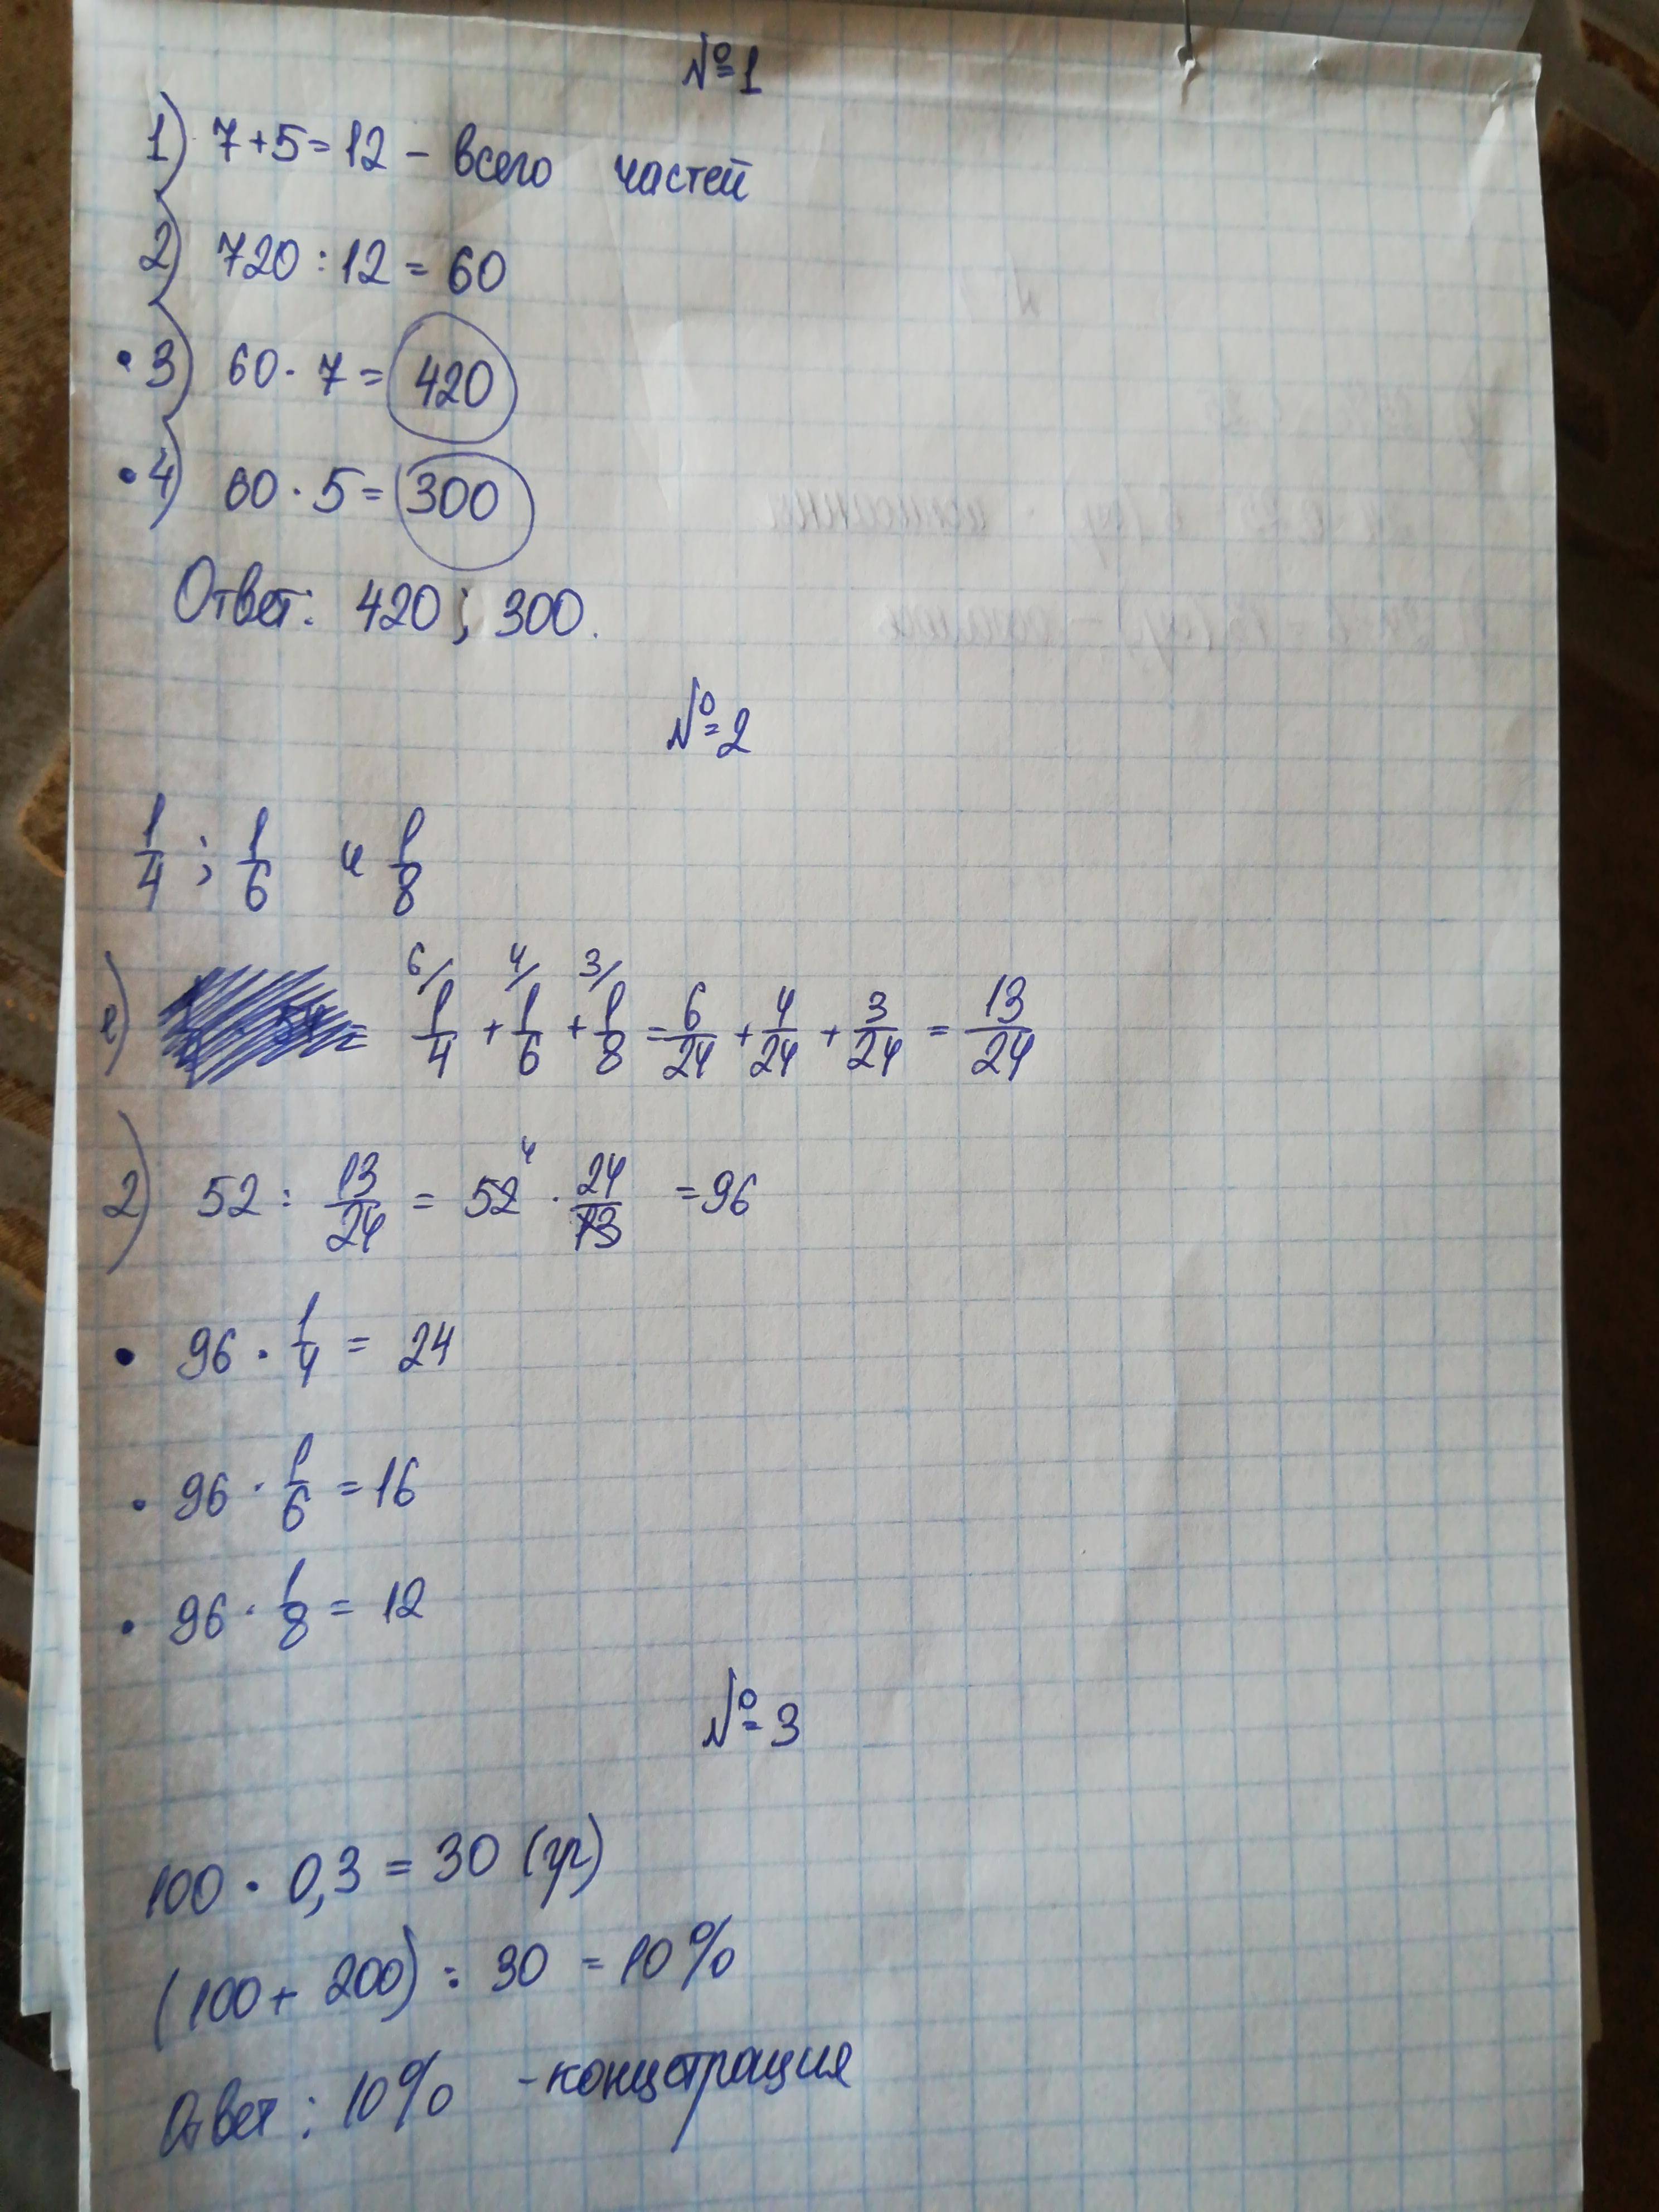 №1
1) 7+5=12 - всего частей
2) 720 : 12 = 60
• 3) 60 · 7 = 420
• 4) 60 · 5 = 300
Ответ: 420 ; 300.
№2
1/4 ; 1/6 и 1/8
6/ 4/ 3/
1) = 1/4 + 1/6 + 1/8 = 6/24 + 4/24 + 3/24 = 13/24
2) 52 : 13/24 = 52 ⁴ · 24/13 = 96
• 96 · 1/4 = 24
• 96 · 1/6 = 16
• 96 · 1/8 = 12
№3
100 · 0,3 = 30 (гр)
(100 + 200) : 30 = 10%
Ответ : 10% - концстрация